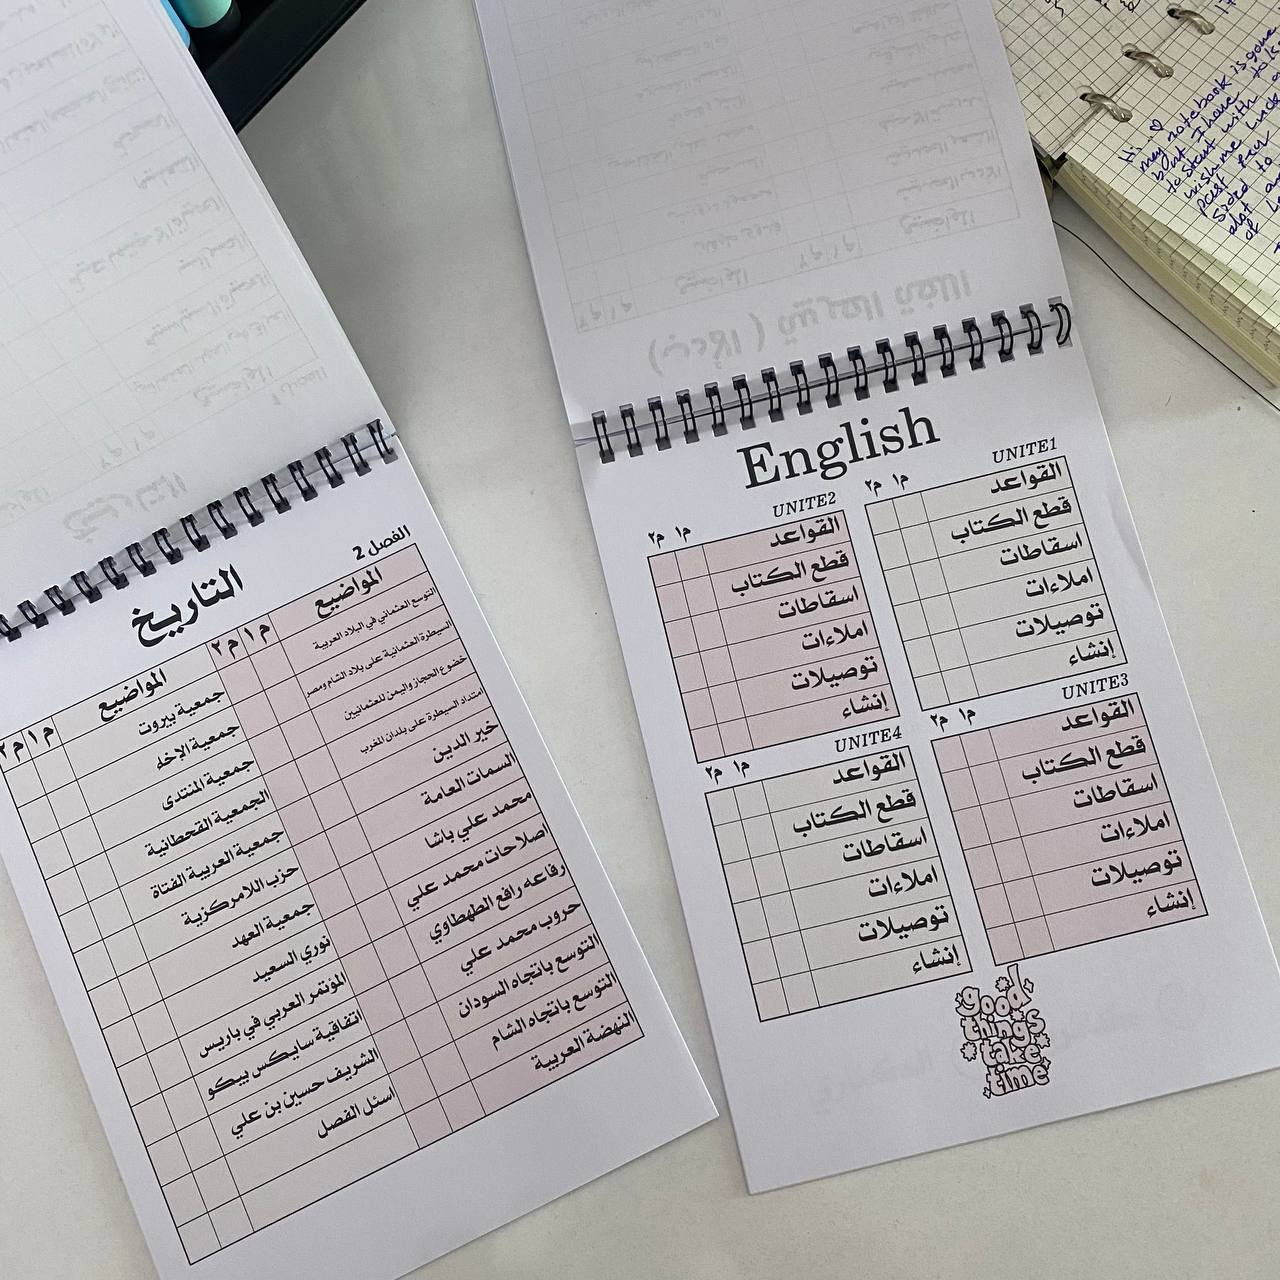 التاريخ
الفصل 2
المواضيع
م١
م٢
التوسع العثماني في البلاد العربية
السيطرة العثمانية على بلاد الشام ومصر
خضوع الحجاز واليمن للعثمانيين
امتداد السيطرة على بلدان المغرب
خير الدين
السمات العامة
محمد علي باشا
اصلاحات محمد علي
رفاعه رافع الطهطاوي
حروب محمد علي
التوسع باتجاه السودان
التوسع باتجاه الشام
النهضة العربية
المواضيع
م١
م٢
جمعية بيروت
جمعية الإخاء
جمعية المنتدى
الجمعية القحطانية
جمعية العربية الفتاة
حزب اللامركزية
جمعية العهد
نوري السعيد
المؤتمر العربي في باريس
اتفاقية سايكس بيكو
الشريف حسين بن علي
اسئل الفصل
English
UNITE1
م١
م٢
القواعد
قطع الكتاب
اسقاطات
املاءات
توصيلات
إنشاء
UNITE2
م١
م٢
القواعد
قطع الكتاب
اسقاطات
املاءات
توصيلات
إنشاء
UNITE3
م١
م٢
القواعد
قطع الكتاب
اسقاطات
املاءات
توصيلات
إنشاء
UNITE4
م١
م٢
القواعد
قطع الكتاب
اسقاطات
املاءات
توصيلات
إنشاء
good
things
take
time
Hi..
my notebook is gone
but I have to
to start with
wish me luck